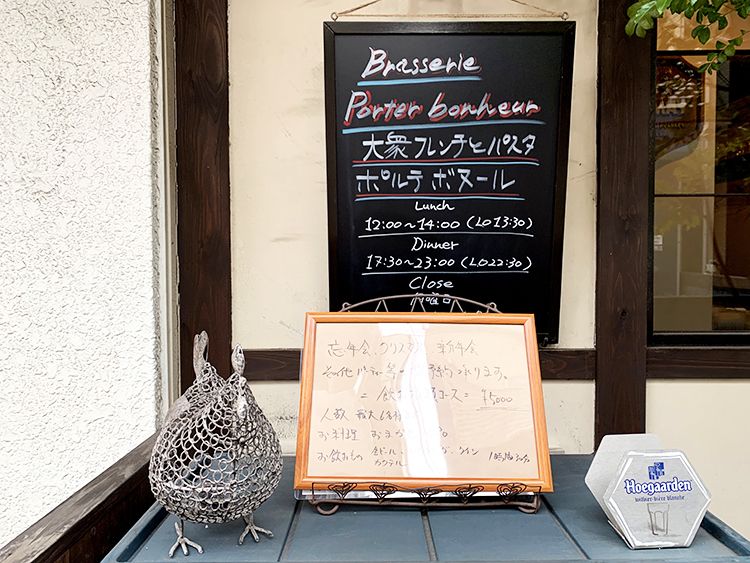 Brasserie
Porter bonheur
大衆フレンチとパスタ
ポルテボヌール
Lunch
12:00~14:00 (LO13:30)
Dinner
17:30~23:00 (LO22:30)
Close
忘年会、クリスマス 新年会
その他パーティー 承ります。
= 飲 コース = ¥5000
人数 最大6名様
お料理 おまかせ
お飲みもの 生ビール ワイン
カクテル
Hoegaarden
witbier-bière blanche